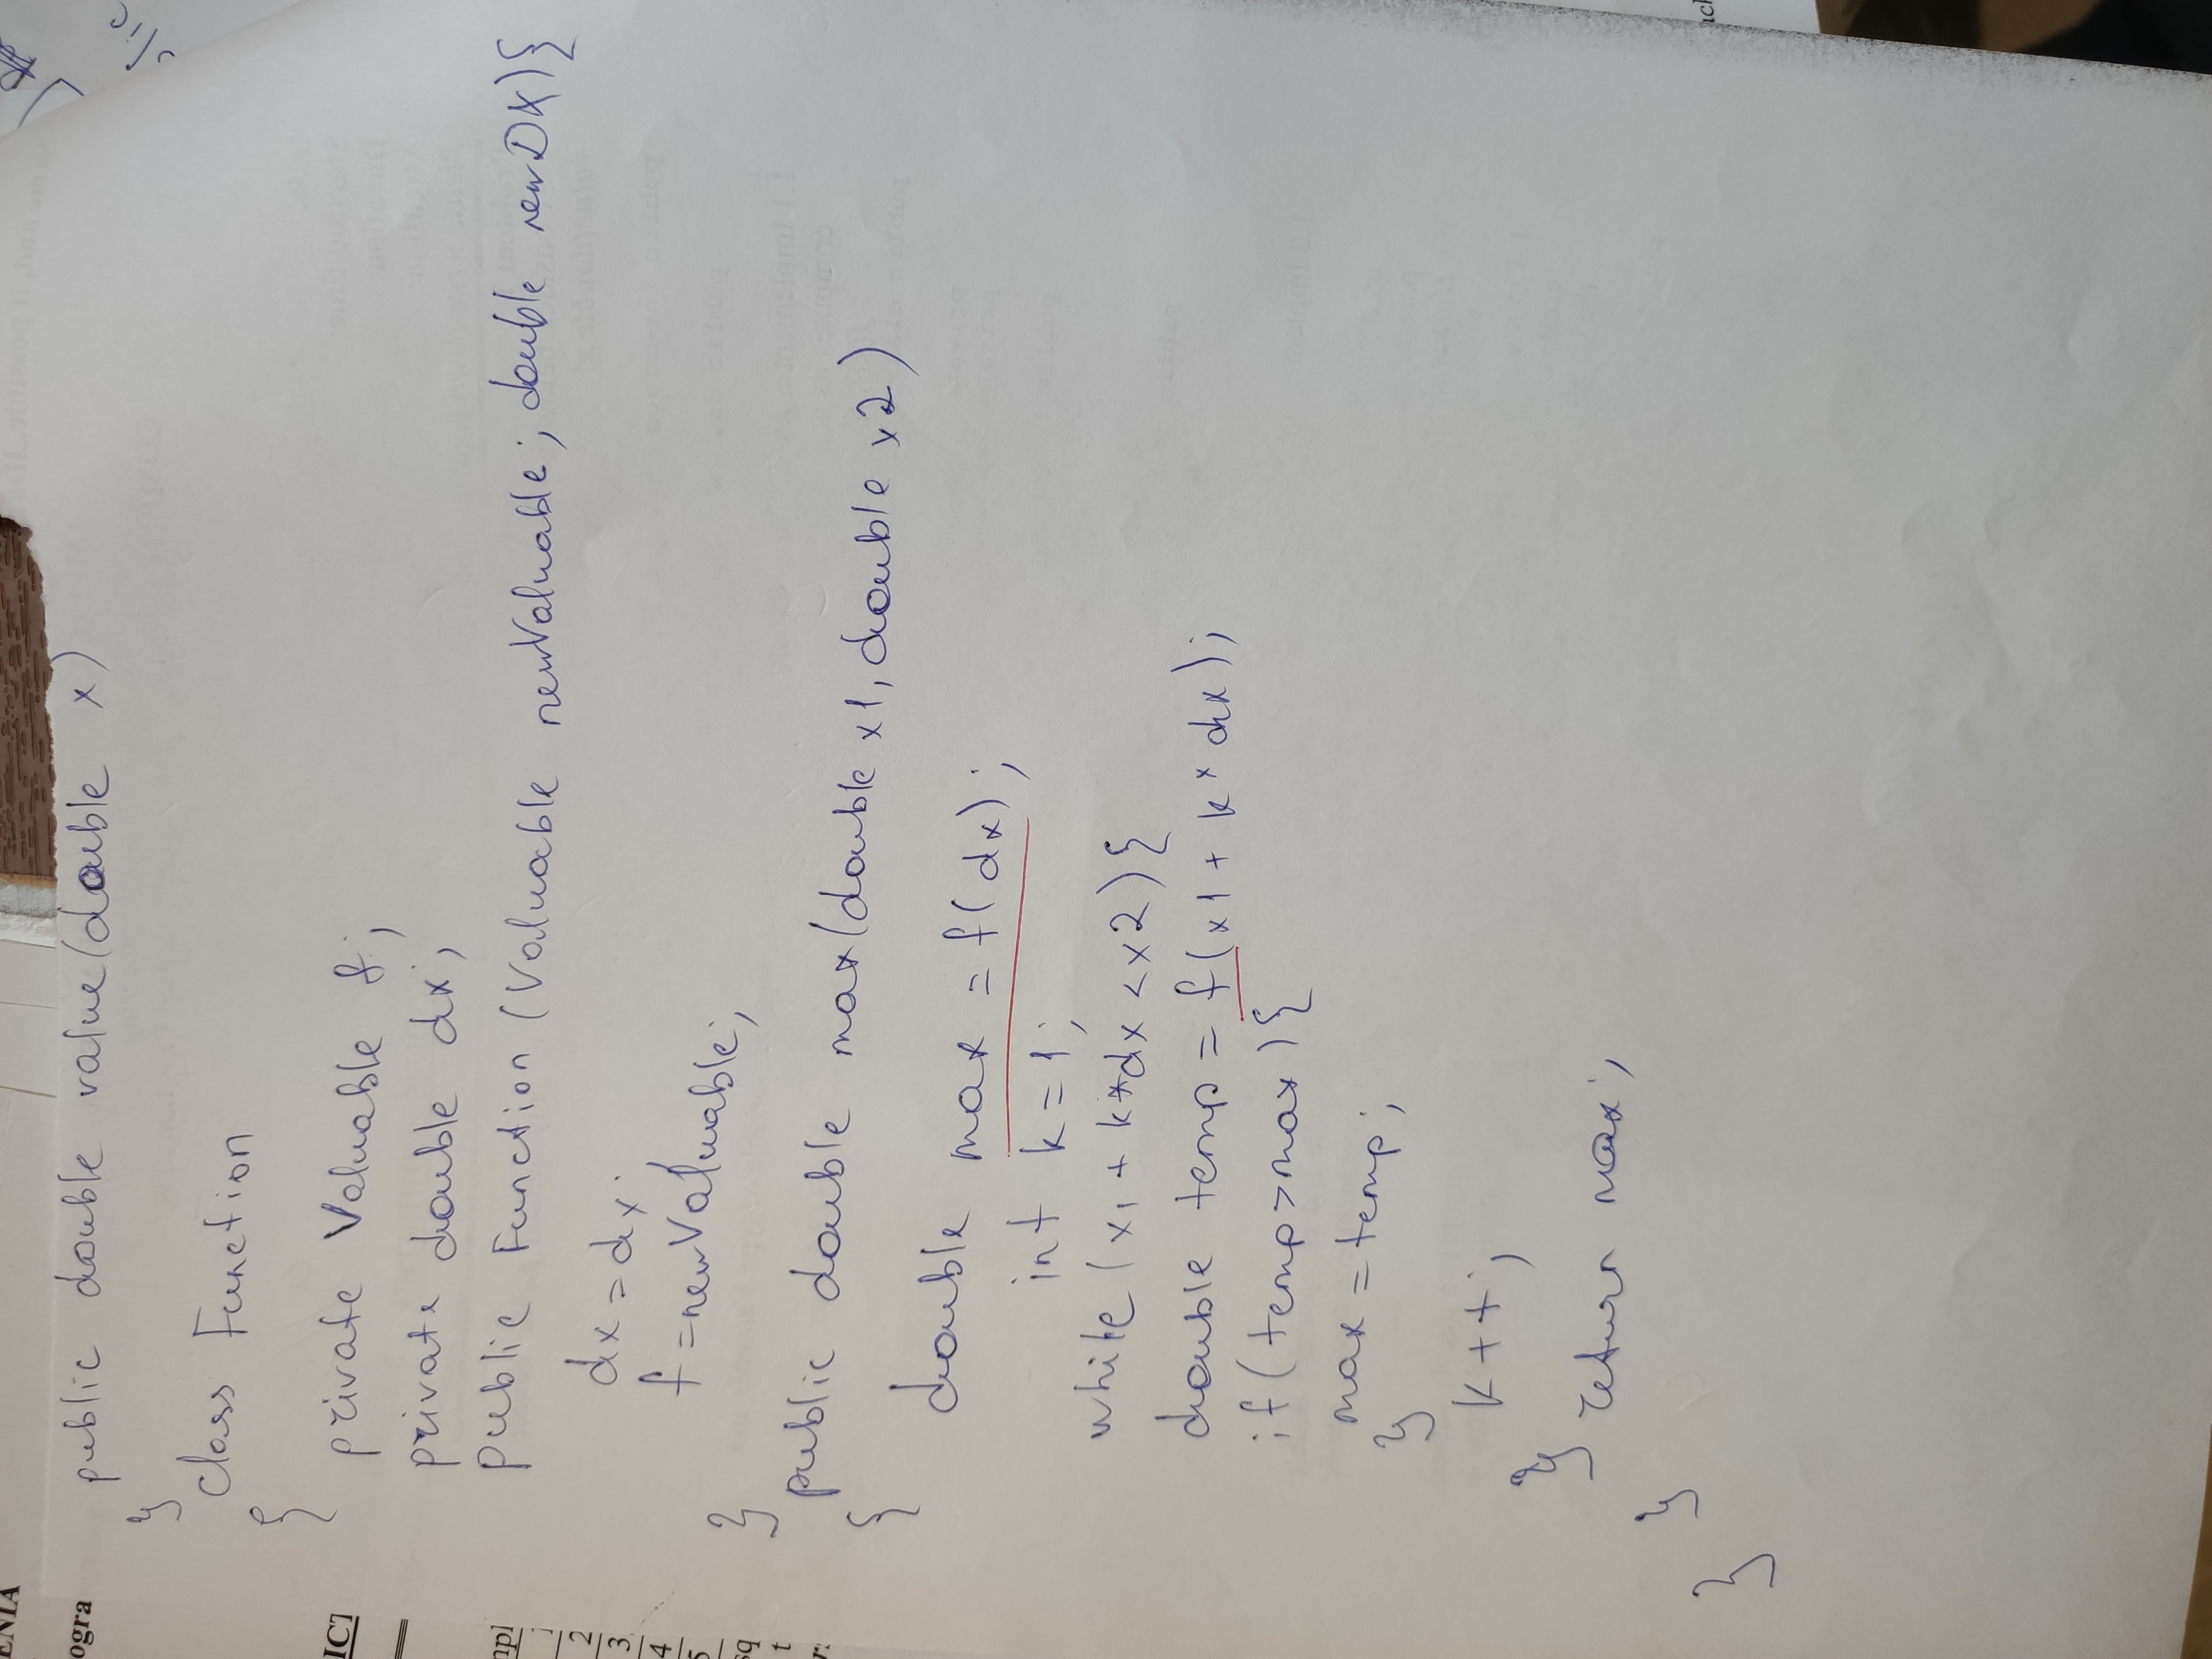 ENIA
ogra
ICT
npl
1
2
3
4
5
sq
t
public double value(double x)
}
class Function
{
private Valuable f;
private double dx;
public Function (Valuable newValuable; double newDX){
dx = dx;
f = newValuable;
}
public double max(double x1, double x2)
{
double max = f(dx);
int k = 1;
while (x1 + k*dx < x2){
double temp = f(x1 + k* dx);
if (temp>max){
max = temp;
}
k++;
}
return max;
}
}